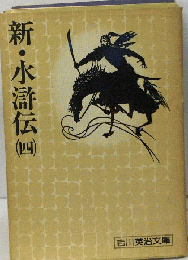 新・水滸伝
(四)
吉川英治文庫